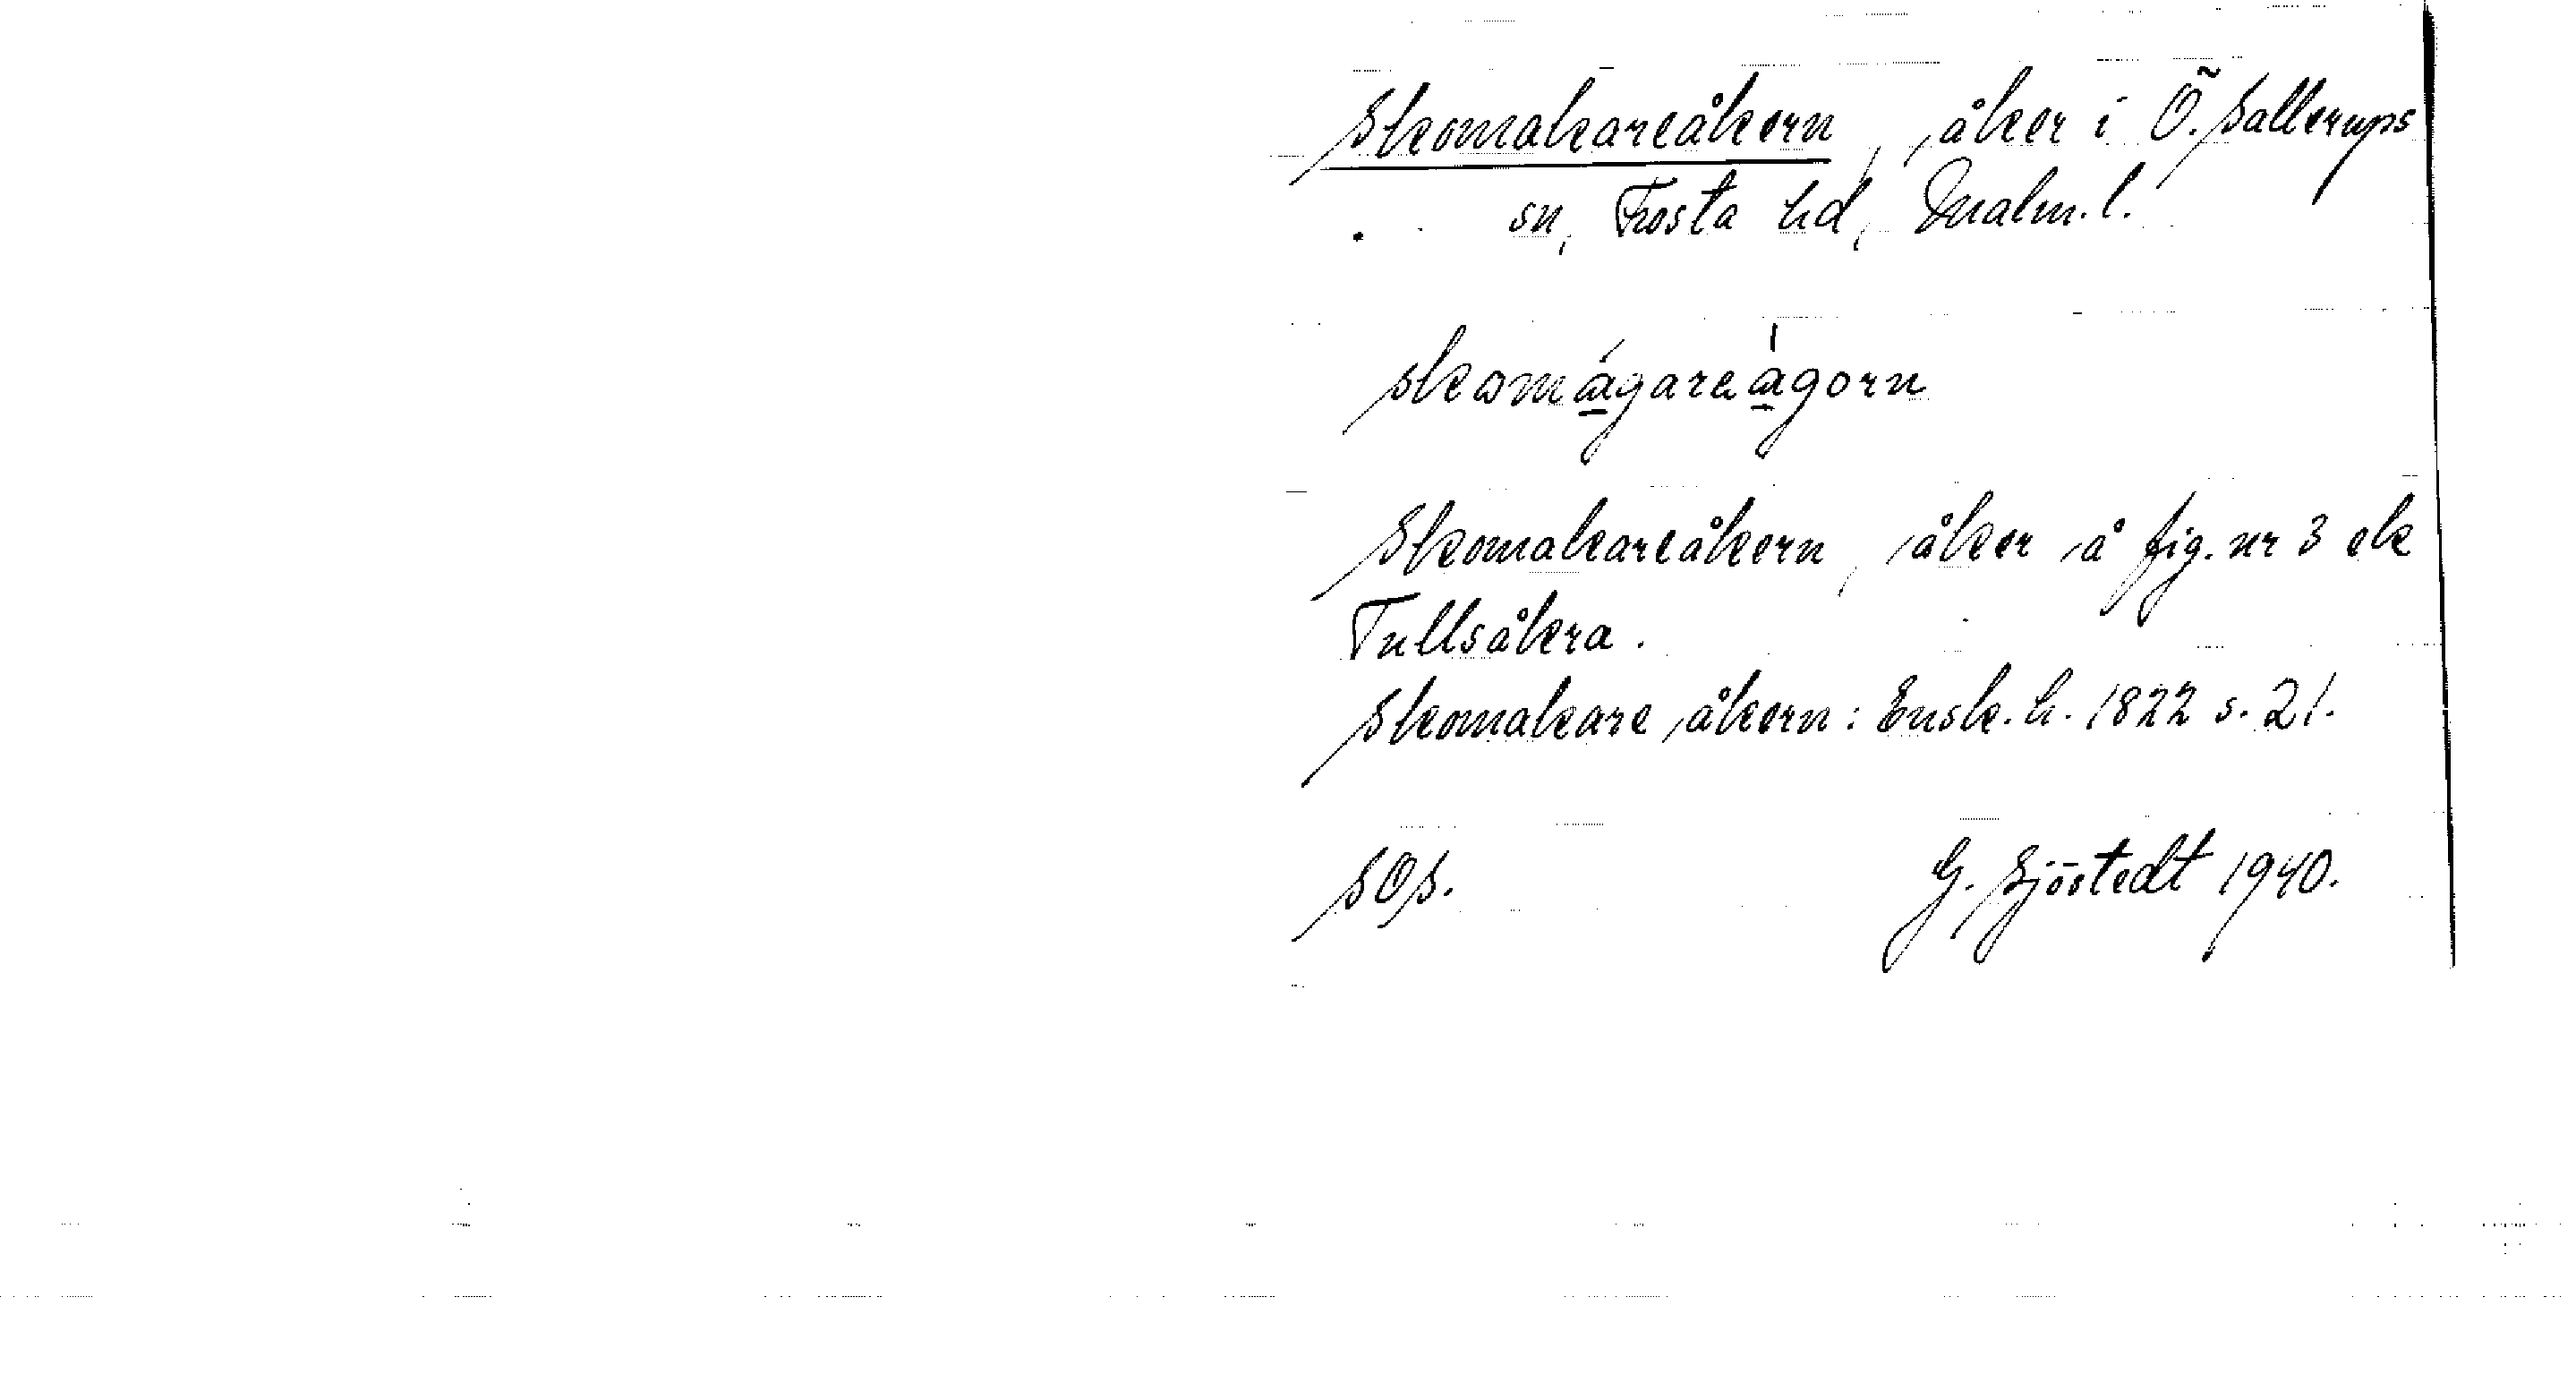 Skomakareåkern, åker i Ö. Sallerups
sn, Frosta hd, Malm. l.
skomágareágorn
Skomakareåkern, åker å fig. nr 3 ek
Tullsåkra.
Skomakare åkern: Ensk. h. 1822 s. 21.
SOS. G. Sjöstedt 1940.